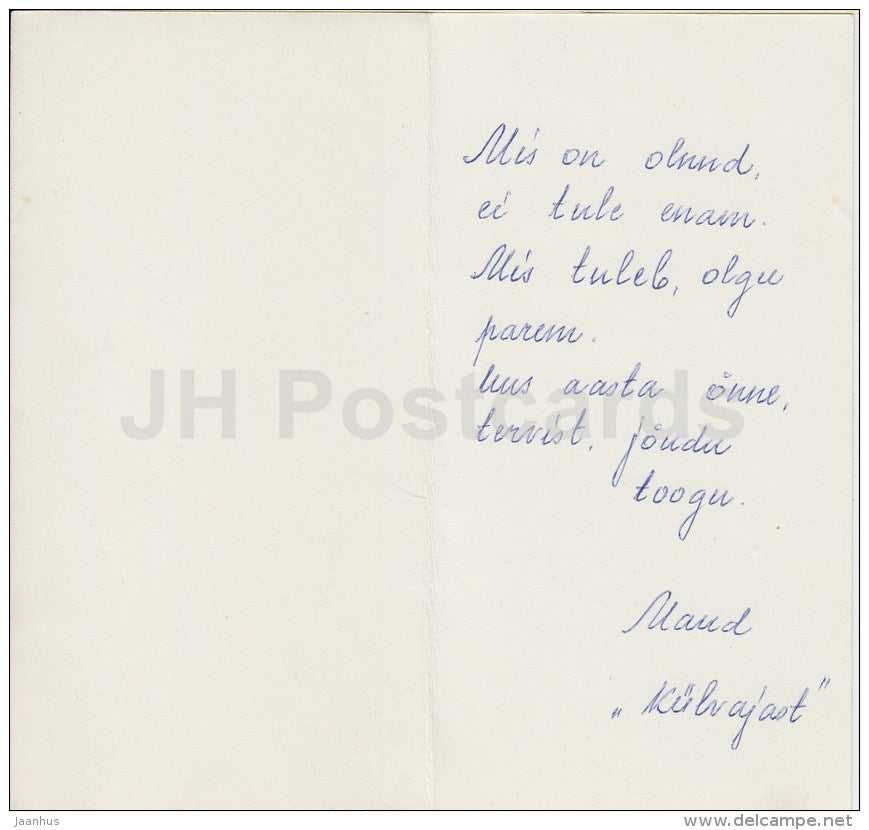 Mis on olnud,
ei tule enam.
Mis tuleb, olgu
parem.
Uus aasta õnne,
tervist, jõudu
toogu.
Maud
„Külvajast"
JH Postcards
Jaanhus
www.delcampe.net